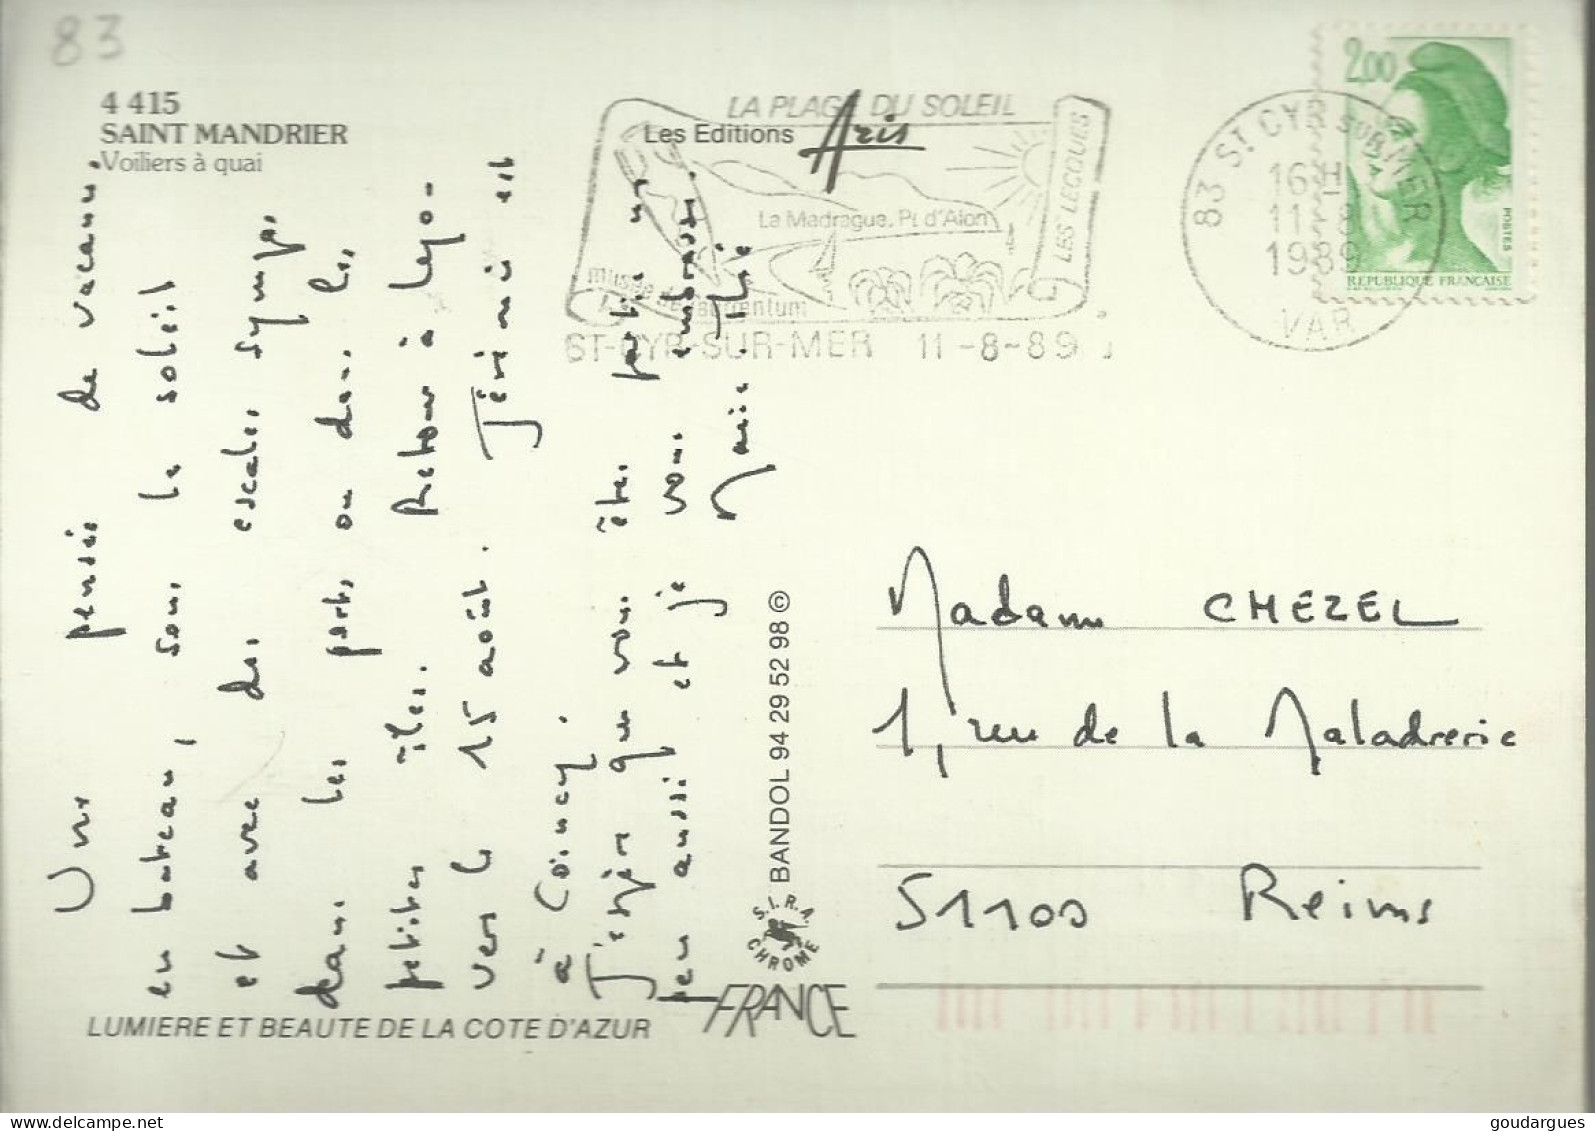 83
4 415
SAINT MANDRIER
Voiliers à quai
Les Editions Aris
LA PLAGE DU SOLEIL
La Madrague. Pt d'Alon
LES LECQUES
musée de Tauroentum
ST-CYR-SUR-MER 11-8-89
83 ST CYR SUR MER
16H
11-8
1989
VAR
2,00
POSTES
REPUBLIQUE FRANÇAISE
Une pensée de vacances
en bateau, sous le soleil
et avec des escales sympas
dans les ports ou dans les
petites îles. Retour à Lyo-
vers le 15 août. Jérémie est
à Coincy.
J'espère que vous êtes partie un
peu aussi et je vous embrasse.
Marie
BANDOL 94 29 52 98 ©
S.I.R.A.
CHROME
FRANCE
LUMIERE ET BEAUTE DE LA COTE D'AZUR
Madame CHEZEL
1, rue de la Maladrerie
51100 Reims
goudargues